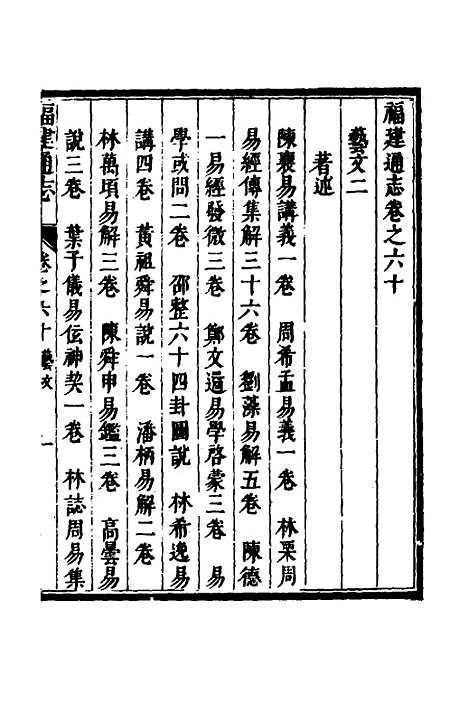 福建通志卷之六十
藝文二
著述
陳襄易講義一卷　周希孟易義一卷　林栗周
易經傳集解三十六卷　劉藻易解五卷　陳德
一易經發微三卷　鄭文遹易學啓蒙三卷　易
學或問二卷　邵整六十四卦圖說　林希逸易
講四卷　黃祖舜易說一卷　潘柄易解二卷
林萬頃易解三卷　陳舜申易鑑三卷　高曇易
說三卷　葉子儀易伝神契一卷　林誌周易集
福建通志　卷之六十　藝文　一